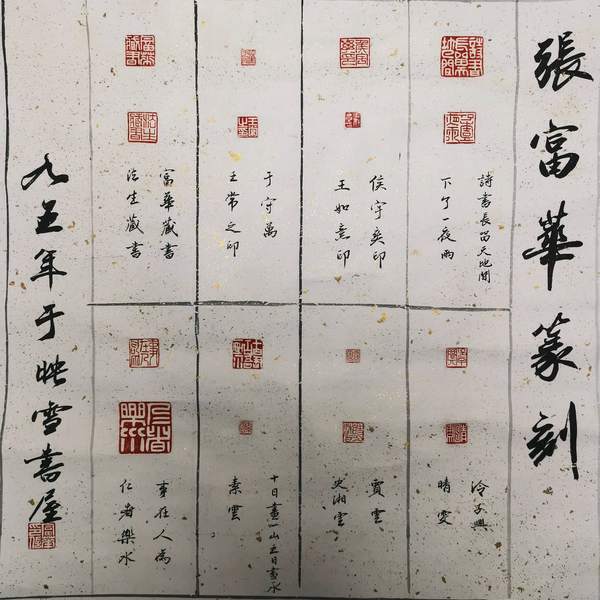 張富華篆刻
詩書長留天地間
下了一夜雨
侯宇奕印
王如意印
于守萬
王常之印
富華藏書
法生藏書
冷子興
晴雯
賈雲
史湘雲
十日畫一山五日畫水
素雲
事在人為
仁者樂水
九五年于映雪書屋